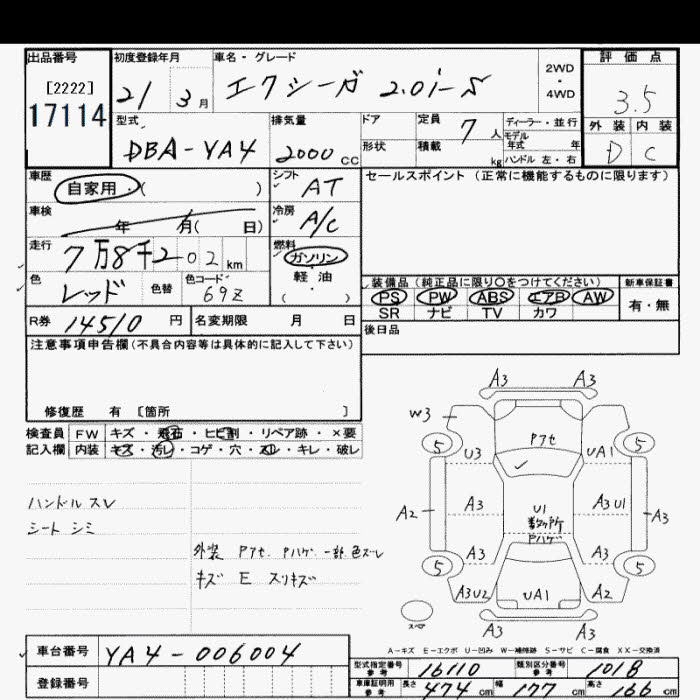 出品番号
[2222]
17114
初度登録年月
21 3月
車名・グレード
エクシーガ 2.0i-S
2WD
・
4WD
評価点
3.5
型式
DBA-YA4
排気量
2000 cc
ドア
形状
定員 7 人
積載 kg
ディーラー・並行
モデル年式 年
ハンドル 左・右
外装 内装
D C
車歴
自家用・( )
シフト
AT
セールスポイント (正常に機能するものに限ります)
車検
年 月( 日)
冷房
A/C
走行
7万8千202 km
燃料
ガソリン
・
軽油
( )
色
レッド
色替
色コード
69Z
装備品 (純正品に限り○をつけてください)
PS PW ABS エアB AW
SR ナビ TV カワ
新車保証書
有・無
R券 14510 円
名変期限 月 日
後日品
注意事項申告欄(不具合内容等は具体的に記入して下さい)
修復歴 有 [箇所 ]
検査員 FW キズ・飛石・ヒビ割・リペア跡・×要
記入欄 内装 キズ・汚レ・コゲ・穴・スレ・キレ・破レ
ハンドル スレ
シート シミ
外装 Pアセ Pハゲ 一部色ズレ
キズ E スリキズ
A3 A3
W3
Pアセ
5 5
U3 UA1
A3 U1 A3 U1
A2 A3
Pハゲ
A3 A3
5 5
A3U2 UA1 A2
A3 A3
スペア
A-キズ E-エクボ U-凹み W-補修跡 S-サビ C-腐食 XX-交換済
車台番号 YA4-006004
登録番号
型式指定番号 参考 16110
類別区分番号 参考 1018
車庫証明用 参考 長さ 474 cm 幅 177 cm 高さ 166 cm